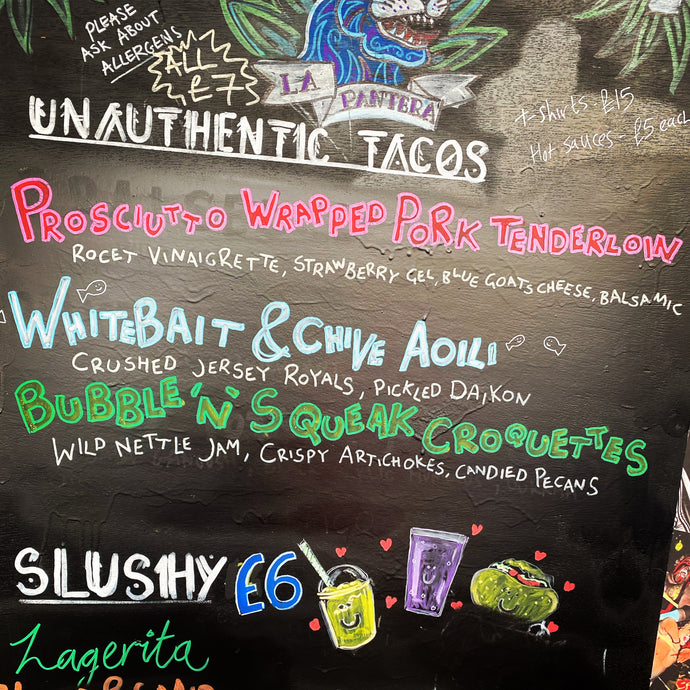 PLEASE
ASK ABOUT
ALLERGENS
ALL
£7
LA PANTERA
t-shirts - £15
Hot sauces - £5 each
UNAUTHENTIC TACOS
PROSCIUTTO WRAPPED PORK TENDERLOIN
ROCET VINAIGRETTE, STRAWBERRY GEL, BLUE GOATS CHEESE, BALSAMIC
WHITEBAIT & CHIVE AOILI
CRUSHED JERSEY ROYALS, PICKLED DAIKON
BUBBLE 'N' SQUEAK CROQUETTES
WILD NETTLE JAM, CRISPY ARTICHOKES, CANDIED PECANS
SLUSHY £6
Lagerita